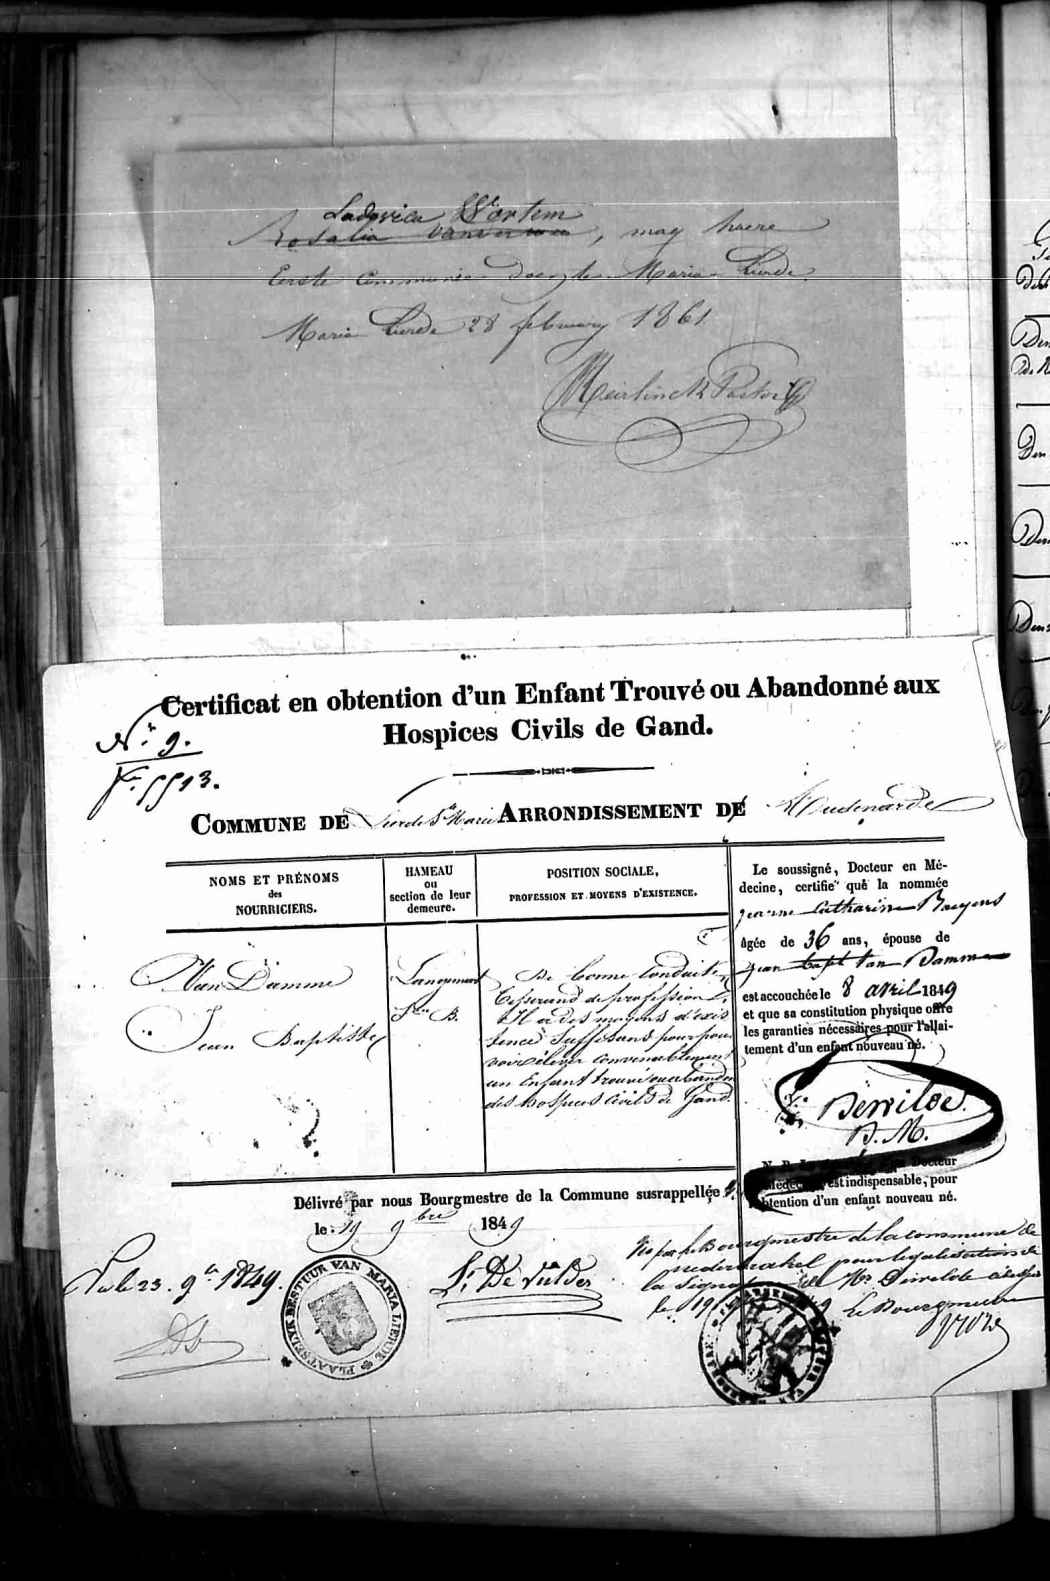 Ludovica Wortem
Rosalia, mag haere
Eerste Communie doen te Maria Lierde
Maria Lierde 28 february 1861
Pastor
Certificat en obtention d'un Enfant Trouvé ou Abandonné aux
Hospices Civils de Gand.
Nr. 9.
5513.
COMMUNE DE Lierde Ste Marie ARRONDISSEMENT DE Audenarde
NOMS ET PRÉNOMS
des
NOURRICIERS.
HAMEAU
ou
section de leur
demeure.
POSITION SOCIALE,
PROFESSION ET MOYENS D'EXISTENCE.
Van Damme
Jean Baptiste
Son B.
De bonne conduite,
Tisserand de profession.
Il a des moyens d'exis
tence suffisans pour pour
voir élever convenablement
un Enfant trouvé ou abandon
des hospices civils de Gand.
Le soussigné, Docteur en Mé-
decine, certifie que la nommée
Jeanne Catharine Baeyens
âgée de 36 ans, épouse de
Jean Bapt Van Damme
est accouchée le 8 avril 1849
et que sa constitution physique offre
les garanties nécessaires pour l'allai-
tement d'un enfant nouveau né.
D. M.
N. B. Docteur
est indispensable, pour
l'obtention d'un enfant nouveau né.
Délivré par nous Bourgmestre de la Commune susrappellée
le 19 9bre 1849
De Vulder
23. 9re 1849.
Vu par le Bourgmestre de la commune de
Nederbrakel pour légalisation de
la Signat
le 19
Le Bourgmestre
PLAATSELYK BESTUUR VAN MARIA LIERDE